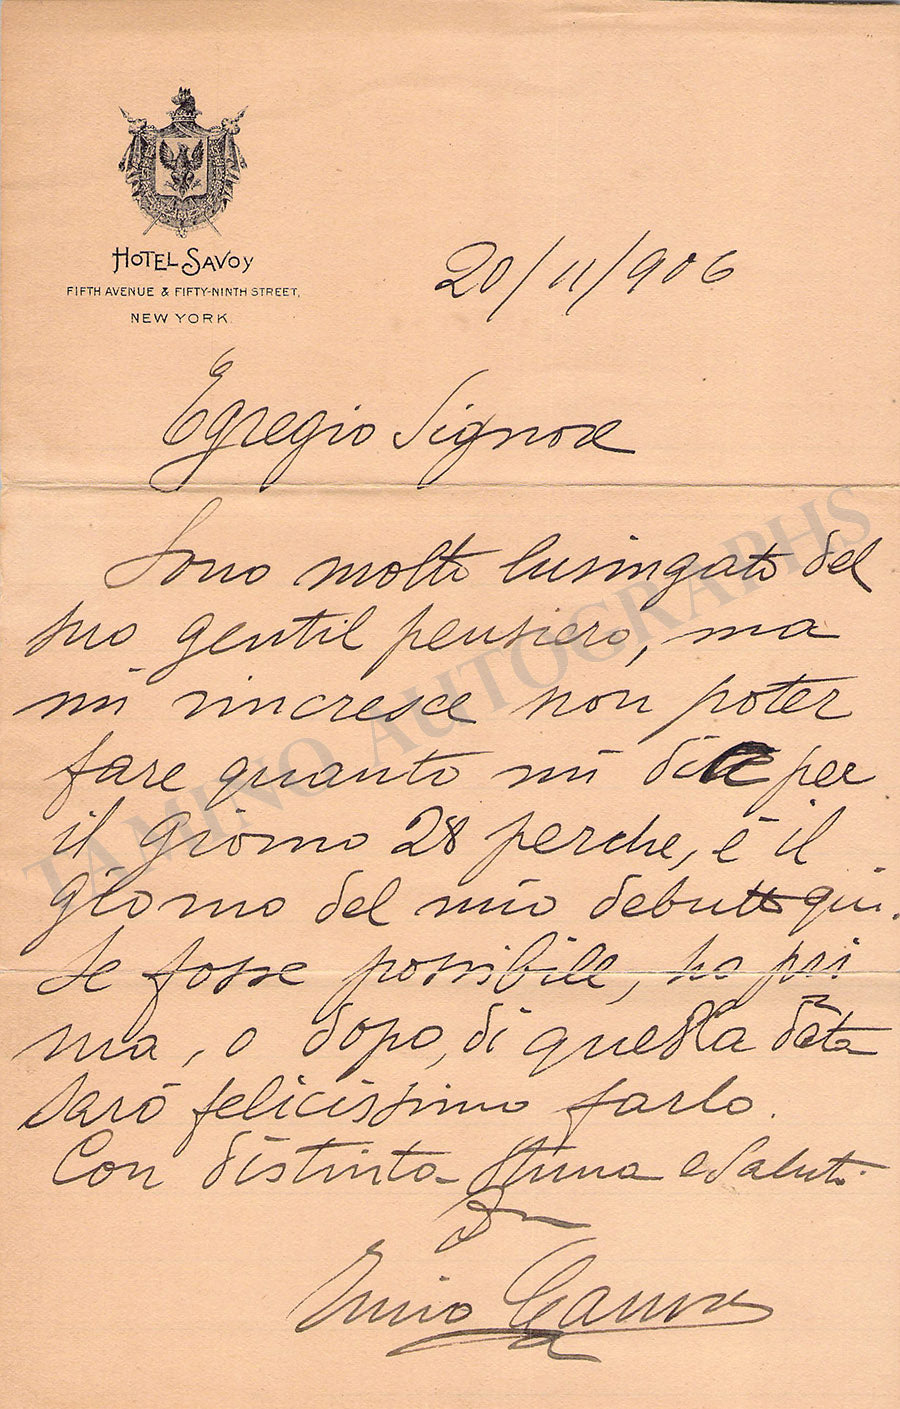 HOTEL SAVOY
FIFTH AVENUE & FIFTY-NINTH STREET,
NEW YORK.
20/11/906
Egregio Signore
Sono molto lusingato del
suo gentil pensiero, ma
mi rincresce non poter
fare quanto mi dice per
il giorno 28 perche, è il
giorno del mio debutto qui.
Se fosse possibile, o pri
ma, o dopo, di questa data
sarò felicissimo farlo.
Con distinta stima e saluti
Enrico Caruso
TAMINO AUTOGRAPHS